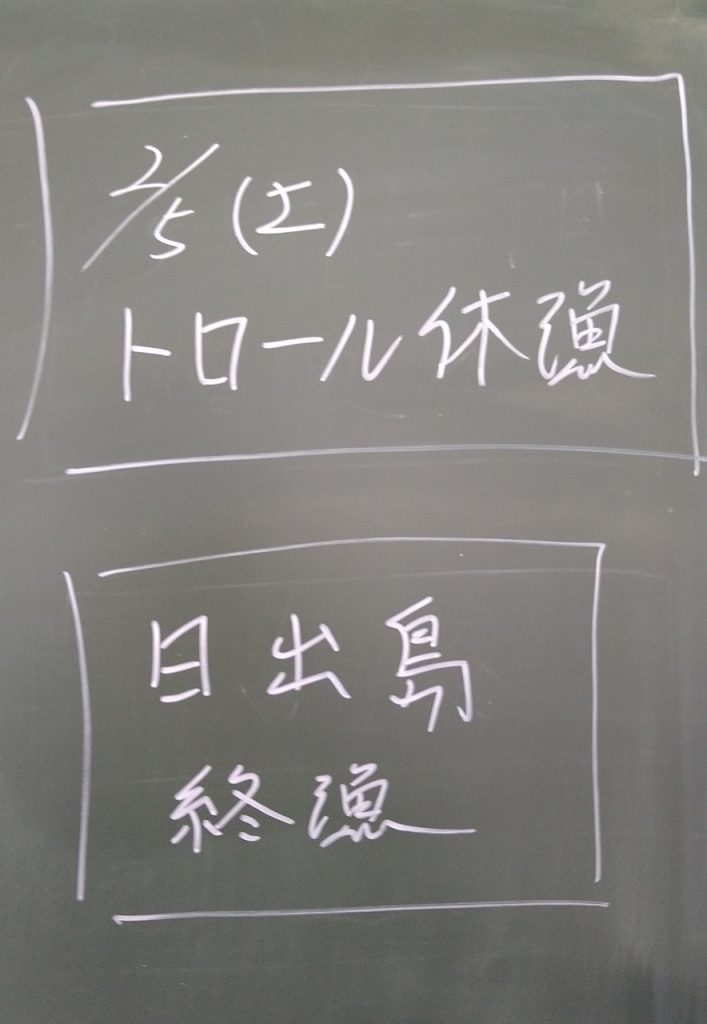 2/5(土)
トロール休漁
日出島
終漁